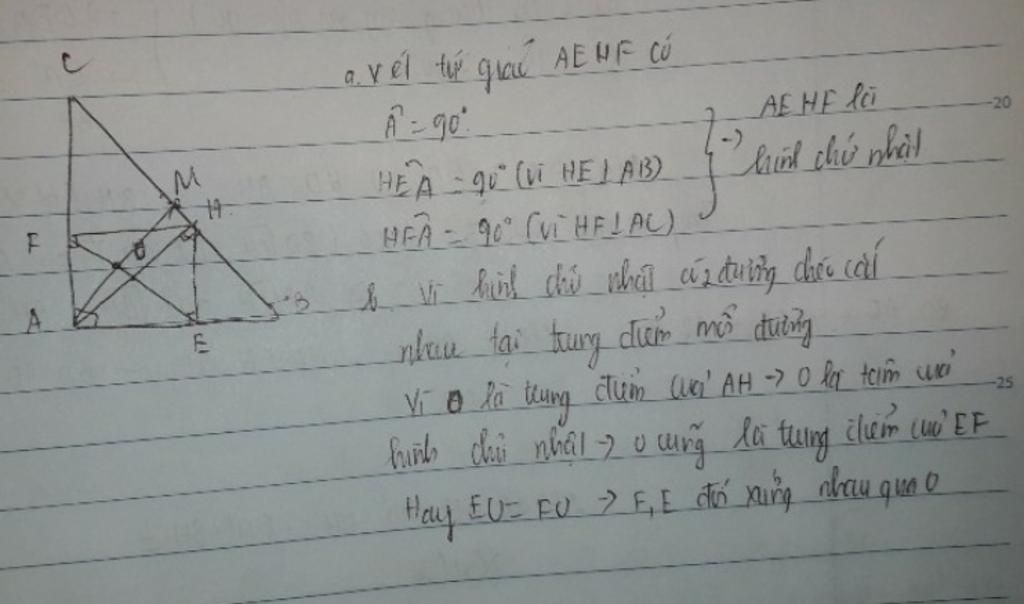 C
M
H
F
O
A
B
E
a. Xét tứ giác AEHF có
Â = 90°.
HEÂ = 90° (vì HE ⊥ AB)
HFÂ = 90° (vì HF ⊥ AC)
} → AEHF là
hình chữ nhật
b. Vì hình chữ nhật có 2 đường chéo cắt
nhau tại trung điểm mỗi đường
Vì O là trung điểm của AH → O là tâm của
hình chữ nhật → O cũng là trung điểm của EF
Hay EO = FO → F, E đối xứng nhau qua O
20
25